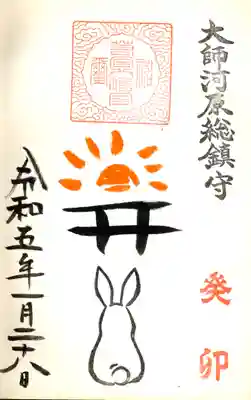 大師河原総鎮守
癸卯
令和五年一月二十八日